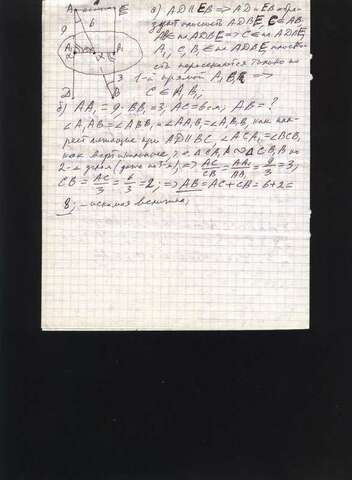 а) AD∥EB ⟹ AD и EB обра-
зуют плоскость ADBE, C ∈ AB.
AB ∈ пл ADBE ⟹ C ∈ пл. ADBE,
A₁, C, B₁ ∈ пл ADBE, плоскос-
ти пересекаются только по
1-й прямой A₁B₁ ⟹
C ∈ A₁B₁
б) AA₁ = 9, BB₁ = 3, AC = 6 см, AB = ?
∠A₁AB = ∠ABB₁ = ∠AA₁B₁ = ∠A₁B₁B, как нак-
рест лежащие при AD∥BC ∠ACA₁ = ∠BCB₁
как вертикальные, ⟹ ACA₁A ∞ ΔCB₁B по
2-м углам (даже по 3-м) ⟹ AC/CB = AA₁/BB₁ = 9/3 = 3;
CB = AC/3 = 6/3 = 2; ⟹ AB = AC + CB = 6 + 2 =
8; – искомая величина;
A
E
9
6
A₁
B₁
3
D
B